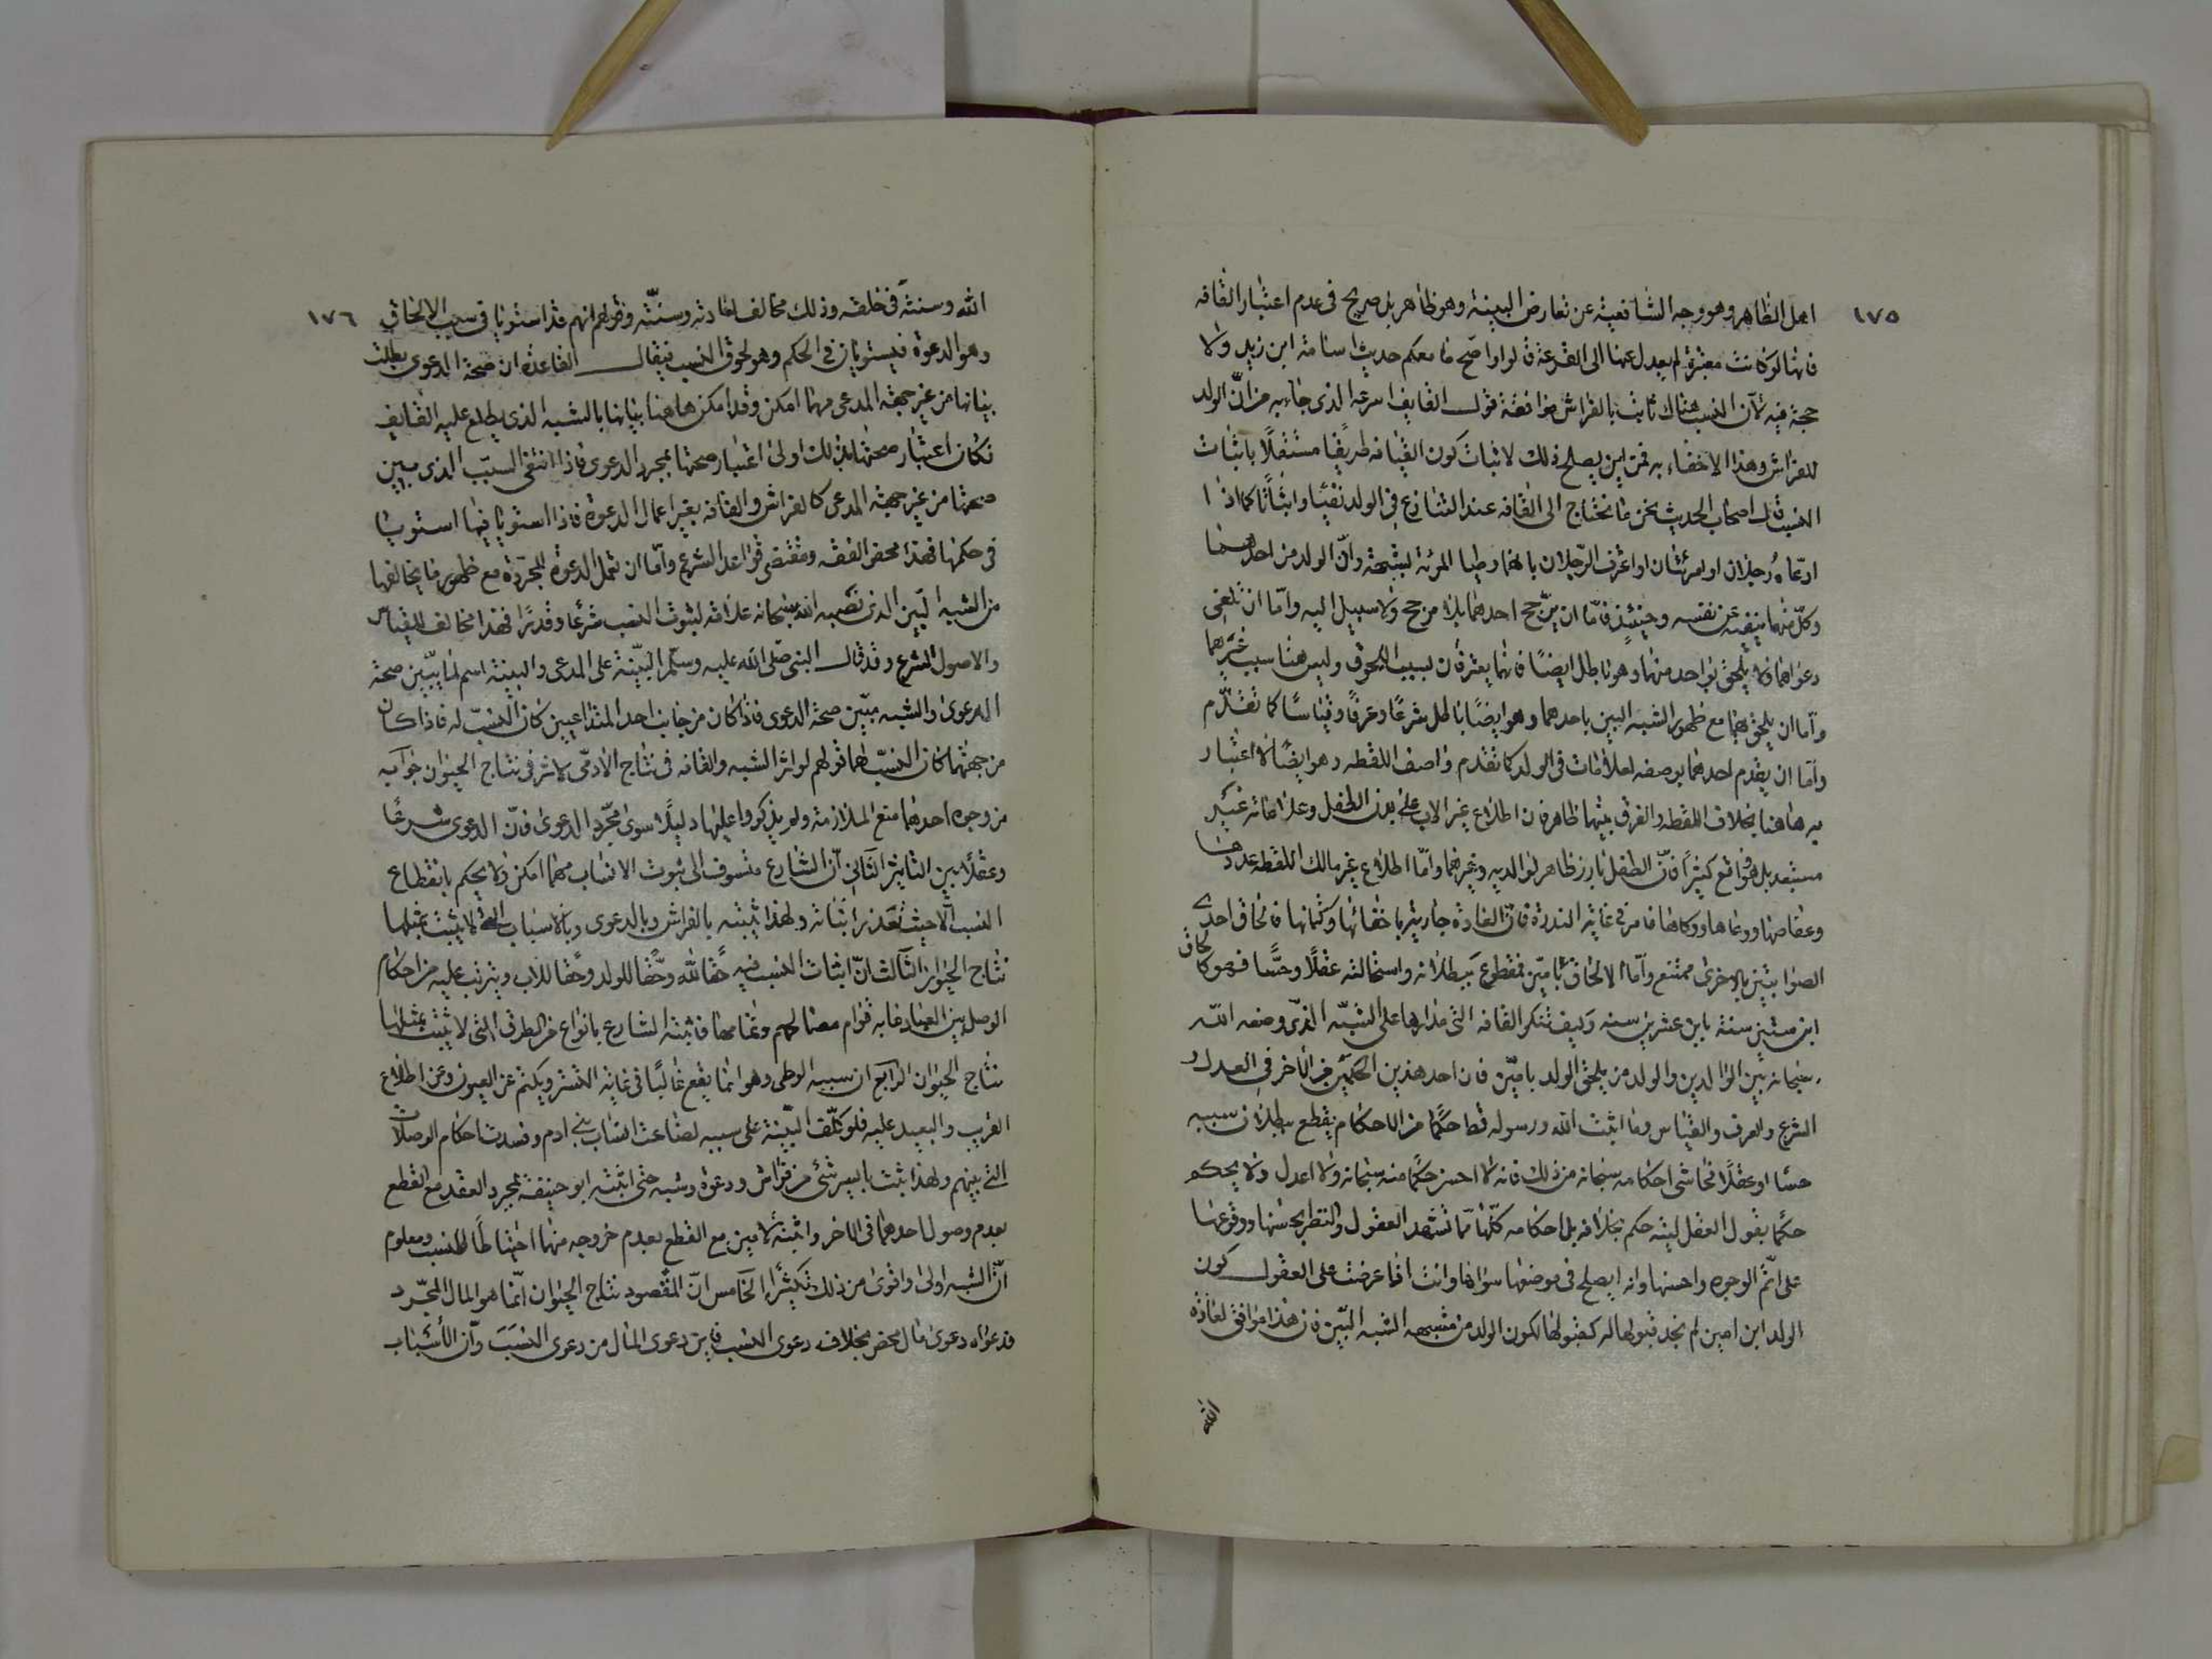 ١٧٥
اهل الظاهر وهو وجه الشافعية عن تعارض البينة وهو ظاهر بل صريح في عدم اعتبار القافه
فانها لو كانت معتبرة لم يعدل عنها الى القرعة قالوا واصح ما معكم حديث اسامة ابن زيد ولا
حجة فيه لان النسب هناك ثابت بالفراش فوافقه قول القايف اسرعه الذى جاء به من ان الولد
للفراش وهذا لاخفاء به فمن اين يصلح ذلك لاثبات كون القيافه طريقا مستقلا باثبات
النسب قال اصحاب الحديث نحن ما نحتاج الى القافه عند التنازع فى الولد نفيا واثباتا كما اذا
ادعاه رجلان او امرئتان او اعترف الرجلان بانهما وطيا المرئة بشبهة وان الولد من احدهما
وكل منهما ينفيه عن نفسه وحينئذ فاما ان يرجح احدهما بلا مرجح ولا سبيل اليه واما ان تلغى
دعواهما فلا يلحق بواحد منهما وهو باطل ايضا فانهما يعترفان بسبب اللحوق وليس هنا سبب غيرهما
واما ان يلحق بهما مع ظهور الشبه البين باحدهما وهو ايضا باطل شرعا وعرفا وقياسا كما تقدم
واما ان يقدم احدهما بوصفه لعلامات فى الولد كما تقدم واصف اللقطه وهو ايضا لا اعتبار
به هاهنا بخلاف اللقطه والفرق بينهما ظاهر فان اطلاع غير الاب على بدن الطفل وعلاماته غير
مستبعد بل هو واقع كثيرا فان الطفل بارز ظاهر لوالديه وغيرهما واما اطلاع غير مالك اللقطه عددها
وعفاصها ووعاها ووكاها فامر فى غاية الندرة فان العادة جارية باخفائها وكتمانها فالحاق احدى
الصوابتين بالاخرى ممتنع واما الالحاق بامين فمقطوع ببطلانه واستحالته عقلا وحسا فهو كالحاق
ابن ستين سنة بابن عشرين سنه وكيف تنكر القافه التى مدارها على الشبه الذى وضعه الله
سبحانه بين الوالدين والولد من يلحق الولد بامين فان احد هذين الحكمين من الاخر فى العدل و
الشرع والعرف والقياس وما اثبت الله ورسوله قط حكما من الاحكام يقطع ببطلان سببه
حسا او عقلا فحاشى احكامه سبحانه من ذلك فانه لا احسن حكما منه سبحانه ولا اعدل ولا يحكم
حكما يقول العقل ليته حكم بخلافه بل احكامه كلها مما تشهد العقول والفطر بحسنها ووقوعها
على اتم الوجوه واحسنها وانه لا يصلح فى موضعها سواها وانت اذا عرضت على العقول كون
الولد ابن امين لم تجد قبولها له كقبولها لكون الولد من مشبهه الشبه البين فان هذا موافق لعادة
الله
١٧٦
الله وسنته فى خلقه وذلك مخالف لعادته وسنته وقولهم انهم قد استويا فى سبب الالحاق
وهو الدعوة فيستويان فى الحكم وهو لحوق النسب فيقال القاعدة ان صحة الدعوى يطلب
بيانها من غير جهة المدعى مهما امكن وقد امكن هاهنا بيانها بالشبه الذى يطلع عليه القايف
فكان اعتبار صحتها بذلك اولى اعتبار صحتها بمجرد الدعوى فاذا انتفى السبب الذى يبين
صحتها من غير جهة المدعى كالفراش والقافه بغير اعمال الدعوة فاذا استويا فيها استويا
فى حكمها فهذا محض الفقه ومقتضى قواعد الشرع واما ان تعمل الدعوة المجردة مع ظهور ما يخالفها
من الشبه البين الذى نصبه الله سبحانه علامة لثبوت النسب شرعا وقدرا فهذا مخالف للقياس
والاصول الشرع وقد قال النبى صلى الله عليه وسلم البينة على المدعى والبينة اسم لما يبين صحة
الدعوى والشبه مبين صحة الدعوى فاذا كان من جانب احد المتداعيين كان النسب له فاذا كان
من جهتهما كان النسب لهما قولهم لو اثر الشبه والقافه فى نتاج الادمى لاثر فى نتاج الحيوان جوابه
من وجوه احدها منع الملازمة ولم يذكروا عليها دليلا سوى مجرد الدعوى فان الدعوى شرعا
وعقلا بين التاثير الثانى ان الشارع متسوف الى ثبوت الانساب مهما امكن ولا يحكم بانقطاع
النسب الا حيث تعذر اثباته ولهذا ثبته بالفراش وبالدعوى وبالاسباب التى لا يثبت بمثلها
نتاج الحيوان الثالث ان اثبات النسب فيه حقا لله وحقا للولد وحقا للاب ويترتب عليه من احكام
الوصل بين العباد ما به قوام مصالحهم وتمامها فاثبته الشارع بانواع من الطرق التى لا تثبت بمثلها
نتاج الحيوان الرابع ان سببه الوطى وهو انما يقع غالبا فى غاية التستر ويكتم عن العيون وعن اطلاع
القريب والبعيد عليه فلو كلف البينة على سببه لضاعت انساب بنى ادم وفسدت احكام الوصلات
التى بينهم ولهذا ثبت بايسر شئ من فراش ودعوة وشبه حتى اثبته ابو حنيفة بمجرد العقد مع القطع
بعدم وصول احدهما فى الاخر واثبته لامين مع القطع بعدم خروجه منهما احتياطا للنسب ومعلوم
ان الشبه اولى واقوى من ذلك بكثير الخامس ان المقصود نتاج الحيوان انما هو المال المجرد
فدعواه دعوى مال محض بخلاف دعوى النسب فاين دعوى المال من دعوى النسب وان الأسباب